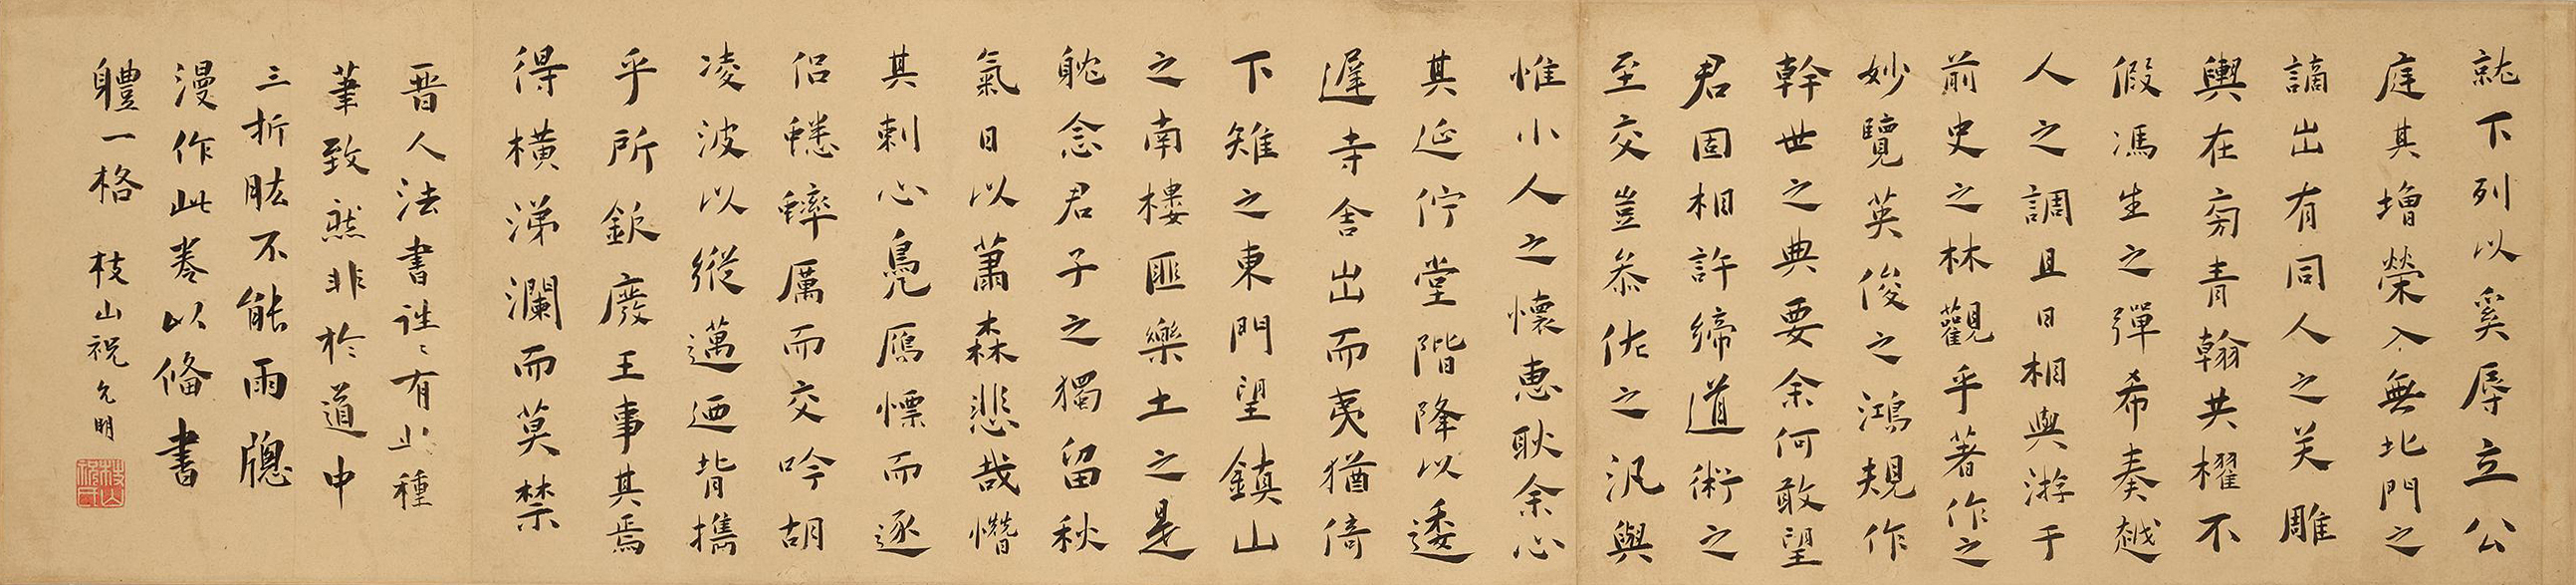 就下列以奚辱立公
庭其增榮入無北門之
謫出有同人之关雕
輿在窮青翰共櫂不
假馮生之彈希奏越
人之調且日相與游于
前史之林觀乎著作之
妙覽英俊之鴻規作
幹世之典要余何敢望
君固相許締道術之
至交豈忝佐之汎與
惟小人之懷惠耿余心
其延佇堂階降以逶
遲寺舍出而夷猶倚
下雉之東門望鎮山
之南樓匪樂土之是
躭念君子之獨留秋
氣日以蕭森悲哉憯
其剌心鳧鴈慓而逐
侶蟋蟀厲而交吟胡
凌波以縱邁迺背攜
乎所欽廢王事其焉
得橫涕瀾而莫禁
晉人法書往〻有此種
筆致然非於道中
三折肱不能雨牕
漫作此卷以俻書
軆一格 枝山祝允明